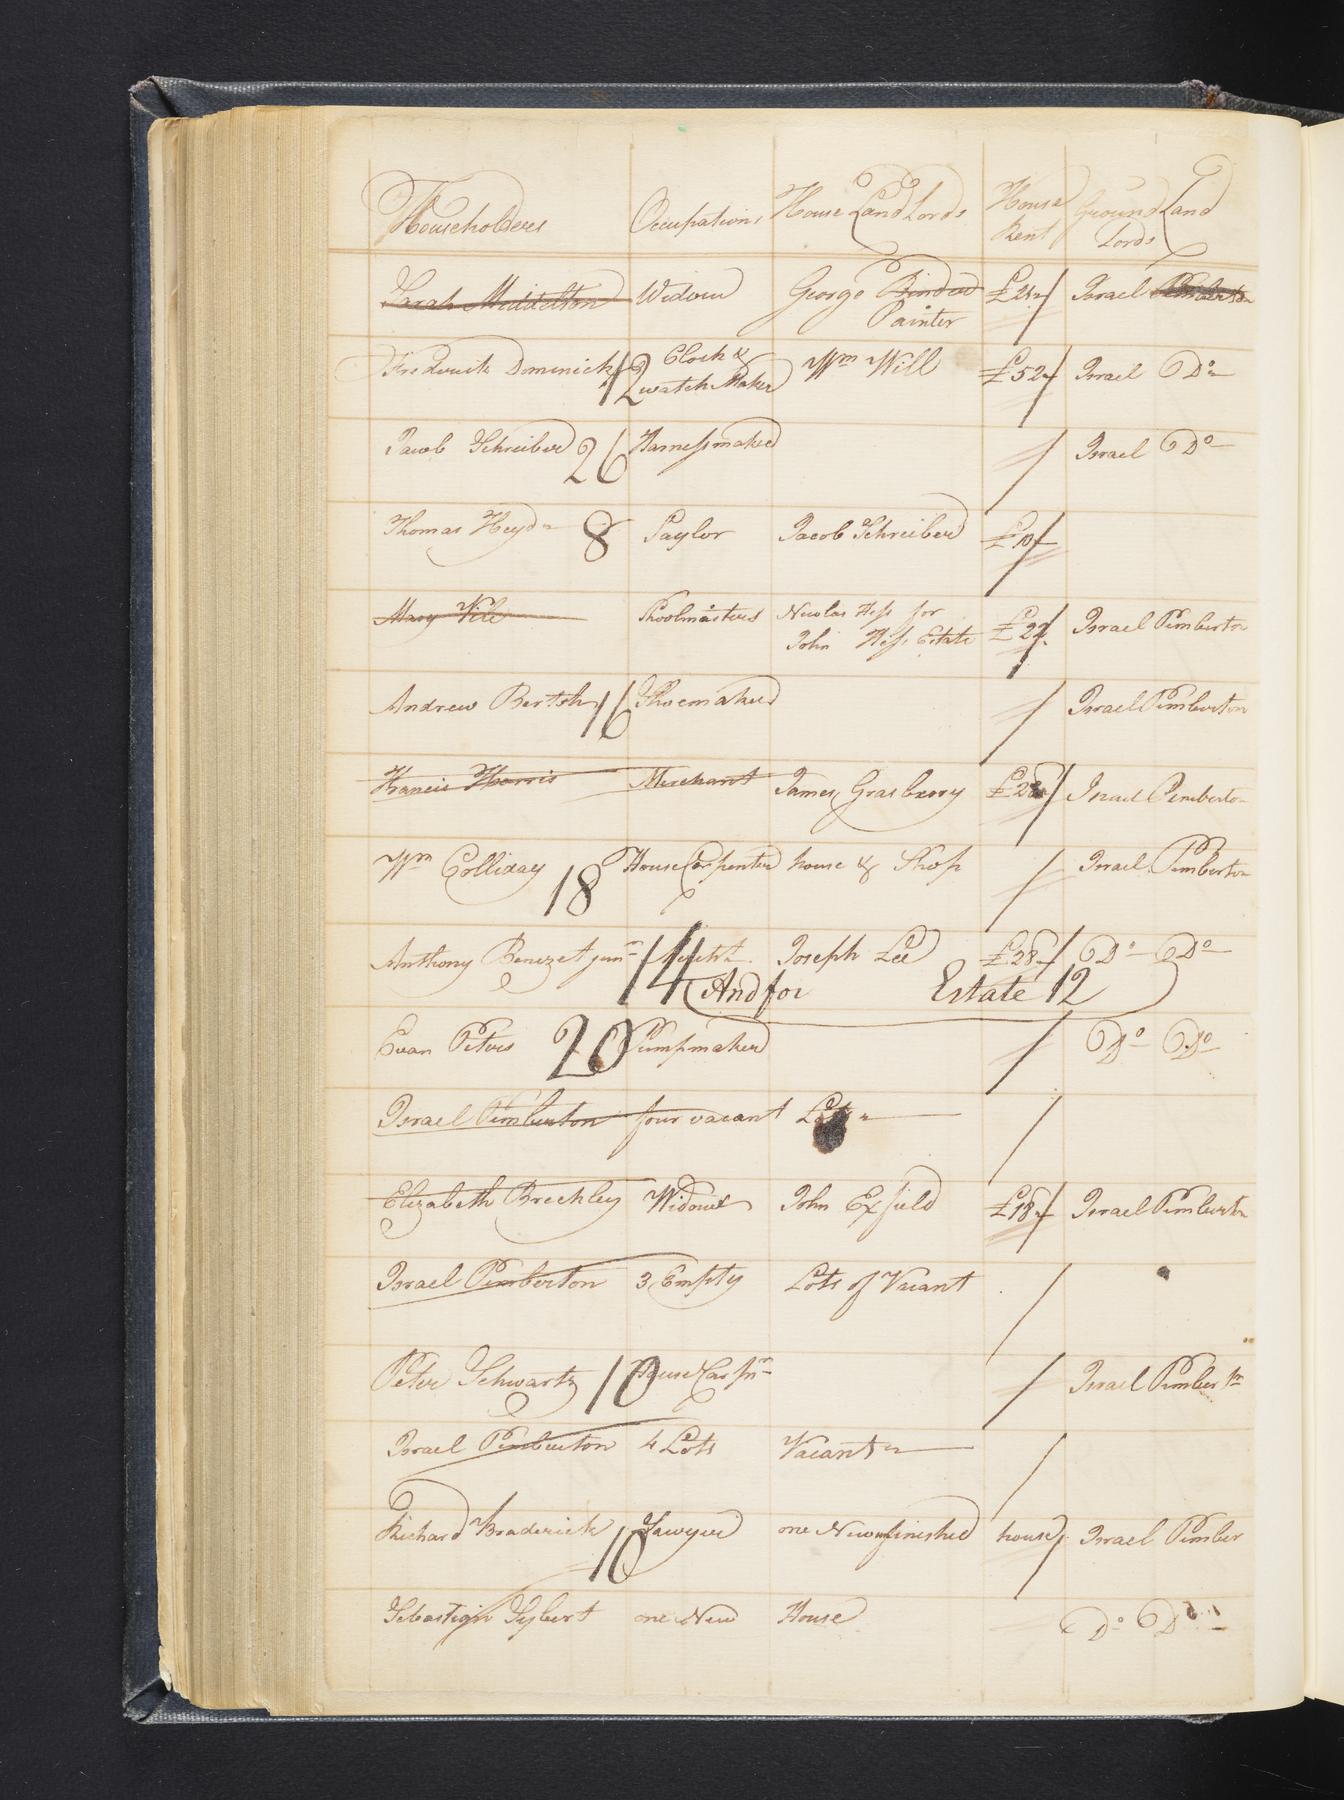 Householders Occupations House Land Lords House Rent Ground Land Lords
Sarah Middelton Widow George Painter £24 Israel Pemberton
Frederick Dominick 12 Clock & watch Maker Wm Will £52 Israel Do
Jacob Schreiber 26 Harnessmaker Israel Do
Thomas Heyd 8 Taylor Jacob Schreiber £10
Mary Vile Nicolas Hess for John Hess Estate £22 Israel Pemberton
Andrew Bertsh 16 Shoemaker Israel Pemberton
Francis Harris Merchant James Grasberry Israel Pemberton
Wm Colliday 18 House Carpenter house & Shop Israel Pemberton
Anthony Benezet junr 14 Joseph Lee £28 Do Do
And for Estate 12
Evan Peters 20 Pumpmaker Do Do
Israel Pemberton four vacant Lots
Elizabeth Brechley Widow John Exfield £18 Israel Pemberton
Israel Pemberton 3 Empty Lots of Vacant
Peter Schwartz 10 House Carpnr Israel Pember
Israel Pemberton 4 Lots Vacant
Richard Braderick 10 Sawyer one New finished house Israel Pember
Sebastign Sybert one New House Do Do